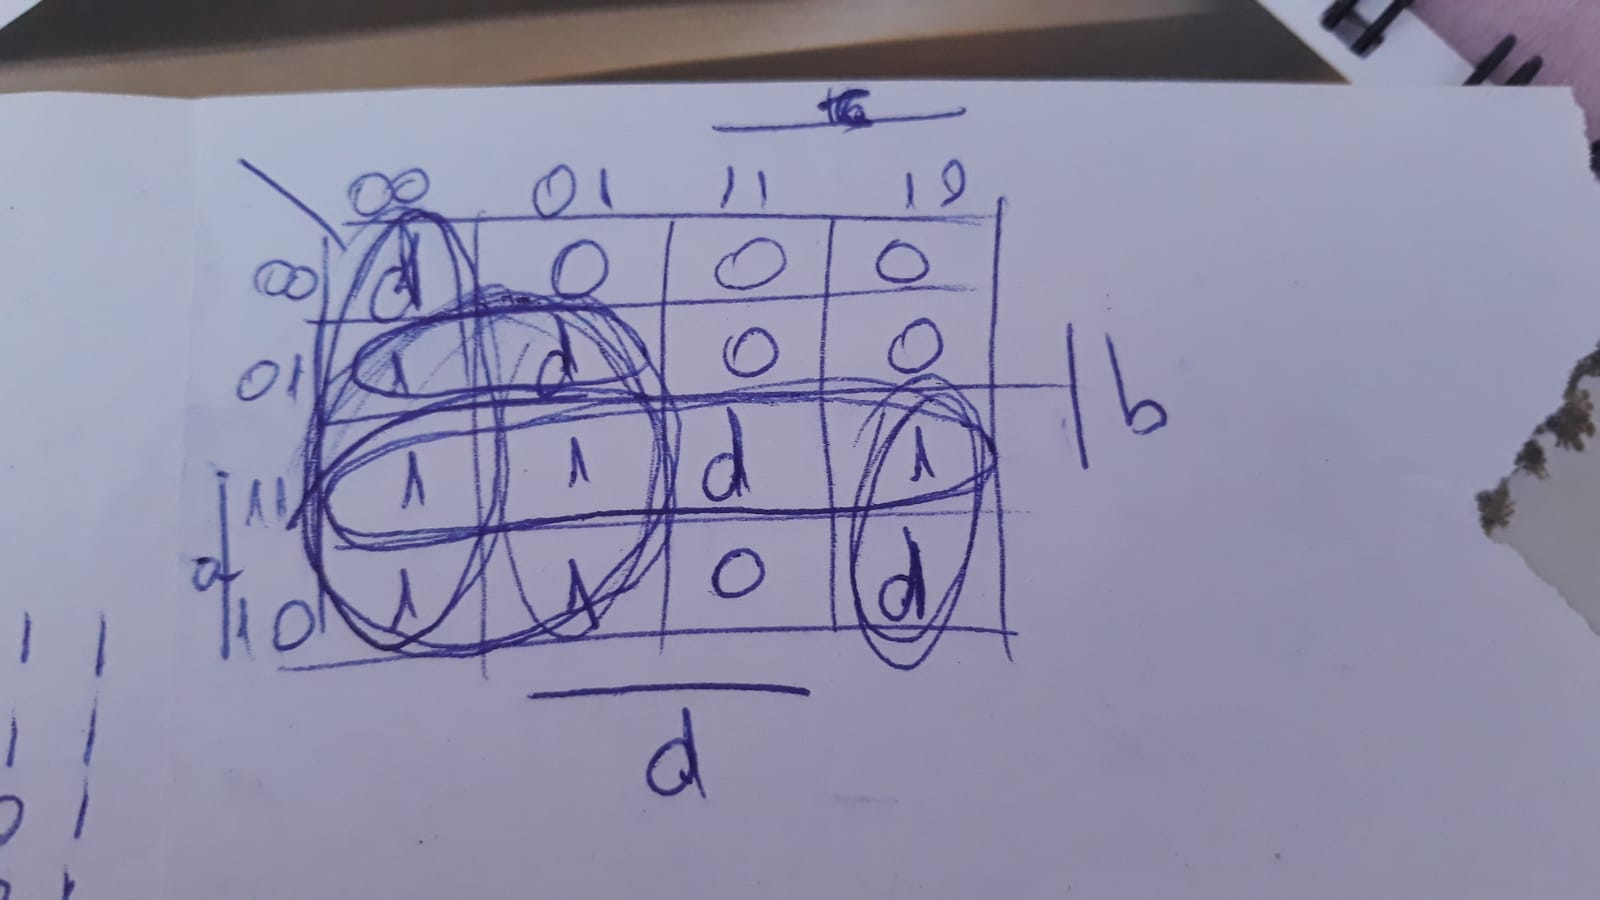 00 01 11 10
00 d 0 0 0
01 1 d 0 0
b
11 1 1 d 1
a
10 1 1 0 d
d
1 1
1 1
0 1